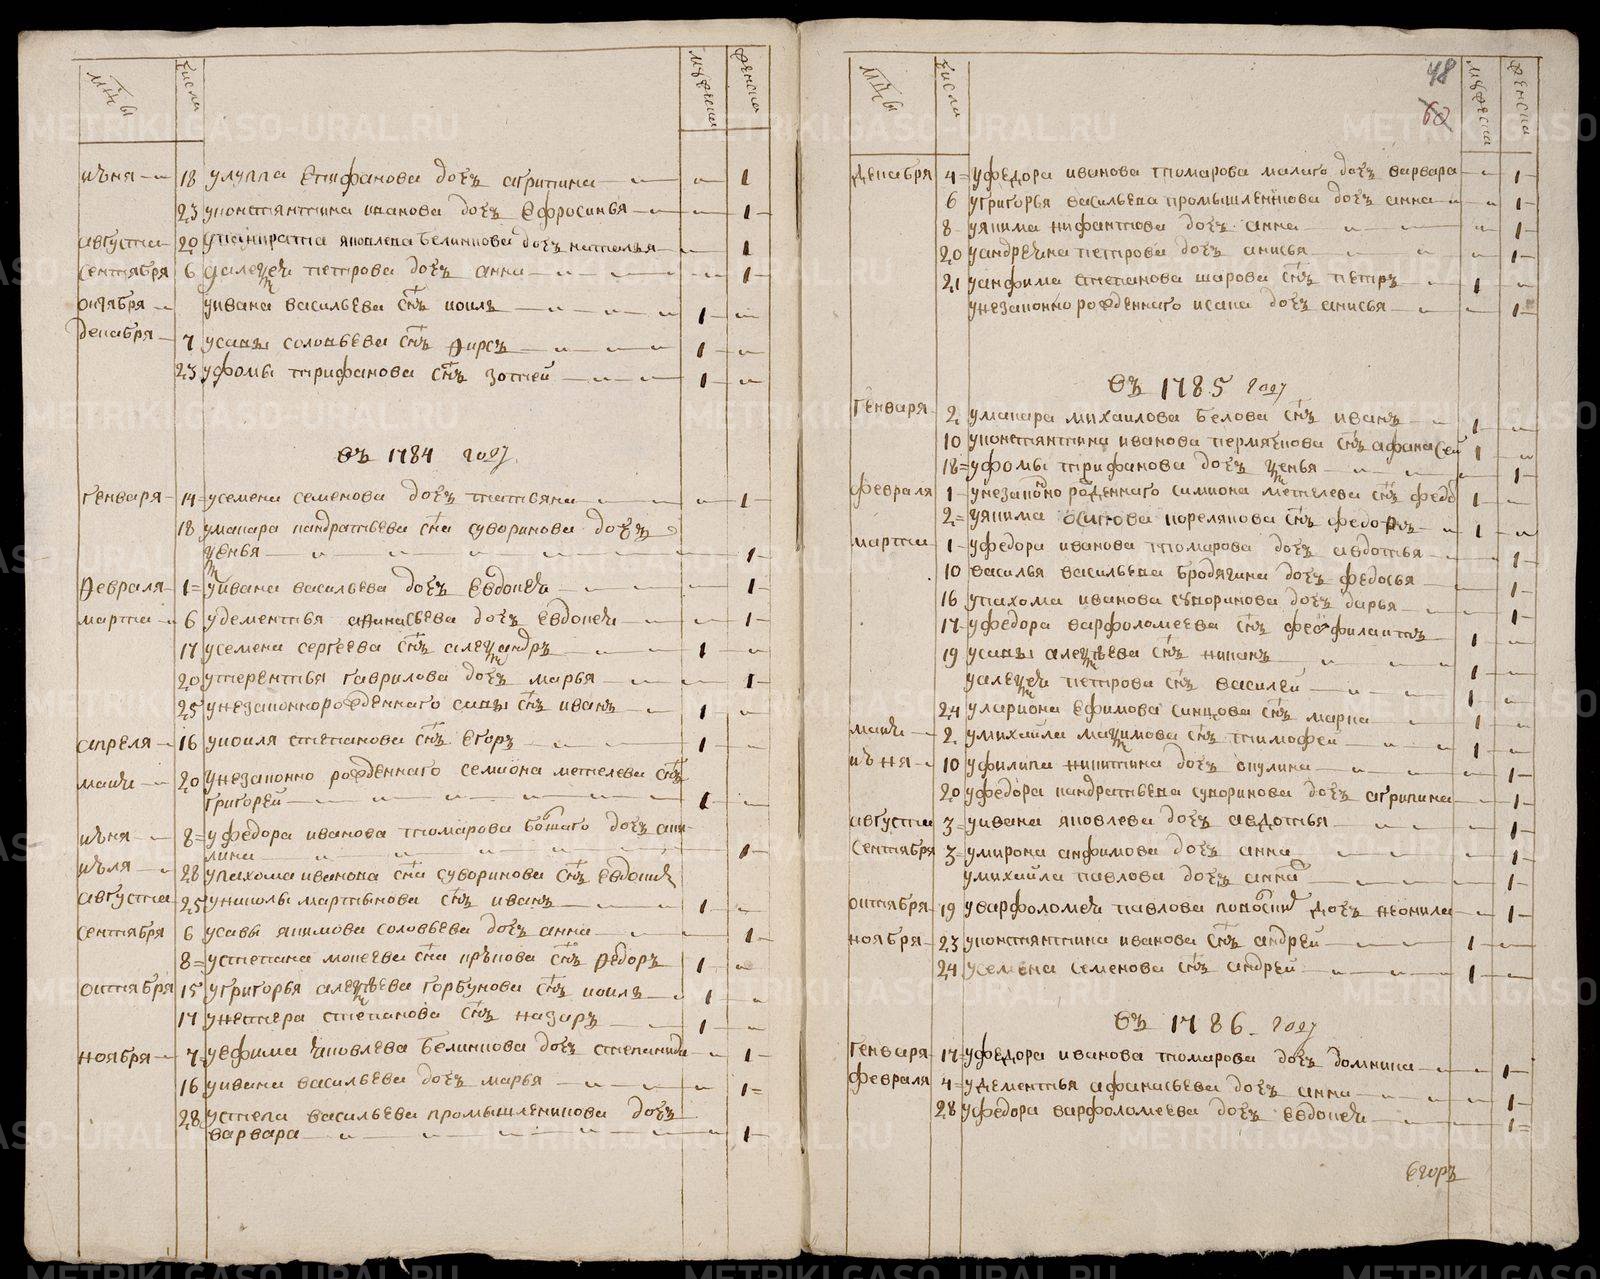 мцы числа мужеска женска
июня 18 у луппа епифанова дочь агрипина 1
23 у константина иванова дочь ефросинья 1
августа 20 у панкрата яковлева белинкова дочь наталья 1
сентября 6 у алексея петрова дочь анна 1
октября у ивана васильева снъ iоиль 1
декабря 7 у савы соловьева снъ фирсъ 1
23 у фомы трифанова снъ зотией 1
въ 1784 году
генваря 14 у семена семенова дочь татьяна 1
18 у макара кандратьева сна суворинова дочь
ксенья 1
февраля 1 у ивана васильева дочь евдокея 1
марта 6 у дементья афанасьева дочь евдокея 1
17 у семена сергеева снъ александръ 1
20 у терентья гаврилова дочь марья 1
25 у незаконнорожденнаго савы снъ иванъ 1
апреля 16 у иоиля степанова снъ егоръ 1
маия 20 у незаконно рожденнаго семиона метелева снъ
григорей 1
июня 8 у федора иванова томарова большаго дочь аки-
лина 1
июля 28 у пахома иванова сна суворинова снъ евдоким
августа 25 у николы мартынова снъ иванъ 1
сентября 6 у савы якимова соловьева дочь анна 1
8 у степана мокеева сна крюкова снъ федоръ 1
октября 15 у григорья алексеева горбунова снъ iоиль 1
17 у нестера степанова снъ назаръ 1
ноября 7 у ефима яковлева белинкова дочь степанида 1
16 у ивана васильева дочь марья 1
28 у степа васильева промышленикова дочь
варвара 1
48
60
мцы числа мужеска женска
декабря 4 у федора иванова томарова малаго дочь варвара 1
6 у григорья васильева промышленкова дочь анна 1
8 у якима нифантова дочь анна 1
20 у андреяна петрова дочь анисья 1
21 у анфима степанова шарова снъ петръ 1
у незаконно рожденнаго исака дочь анисья 1
въ 1785 году
генваря 2 у макара михаилова белова снъ иванъ 1
10 у константина иванова пермякова снъ афанасей 1
18 у фомы трифанова дочь ксенья 1
февраля 1 у незаконно рожденнаго симиона метелева снъ федо 1
2 у якима осипова корелякова снъ федоръ 1
марта 1 у федора иванова томарова дочь авдотья 1
10 василья васильева бродягина дочь федосья 1
16 у пахома иванова суворинова дочь дарья 1
17 у федора варфоломеева снъ феофилактъ 1
19 у савы алексеева снъ никанъ 1
у алексея петрова снъ василей 1
24 у лариона ефимова синцова снъ марка 1
маия 2 у михайла максимова снъ тимофей 1
июня 10 у филипа никитина дочь окулина 1
20 у федора кандратьева суворинова дочь агрипина 1
августа 3 у ивана яковлева дочь авдотья 1
сентября 3 у мирона анфимова дочь анна 1
у михайла павлова дочь анна 1
октября 19 у варфоломея павлова дочь неонила 1
ноября 23 у константина иванова снъ андрей 1
24 у семена семенова снъ андрей 1
въ 1786 году
генваря 17 у федора иванова томарова дочь домника 1
февраля 4 у дементья афанасьева дочь анна 1
28 у федора варфоломеева дочь евдокея 1
егоръ
METRIKI.GASO-URAL.RU